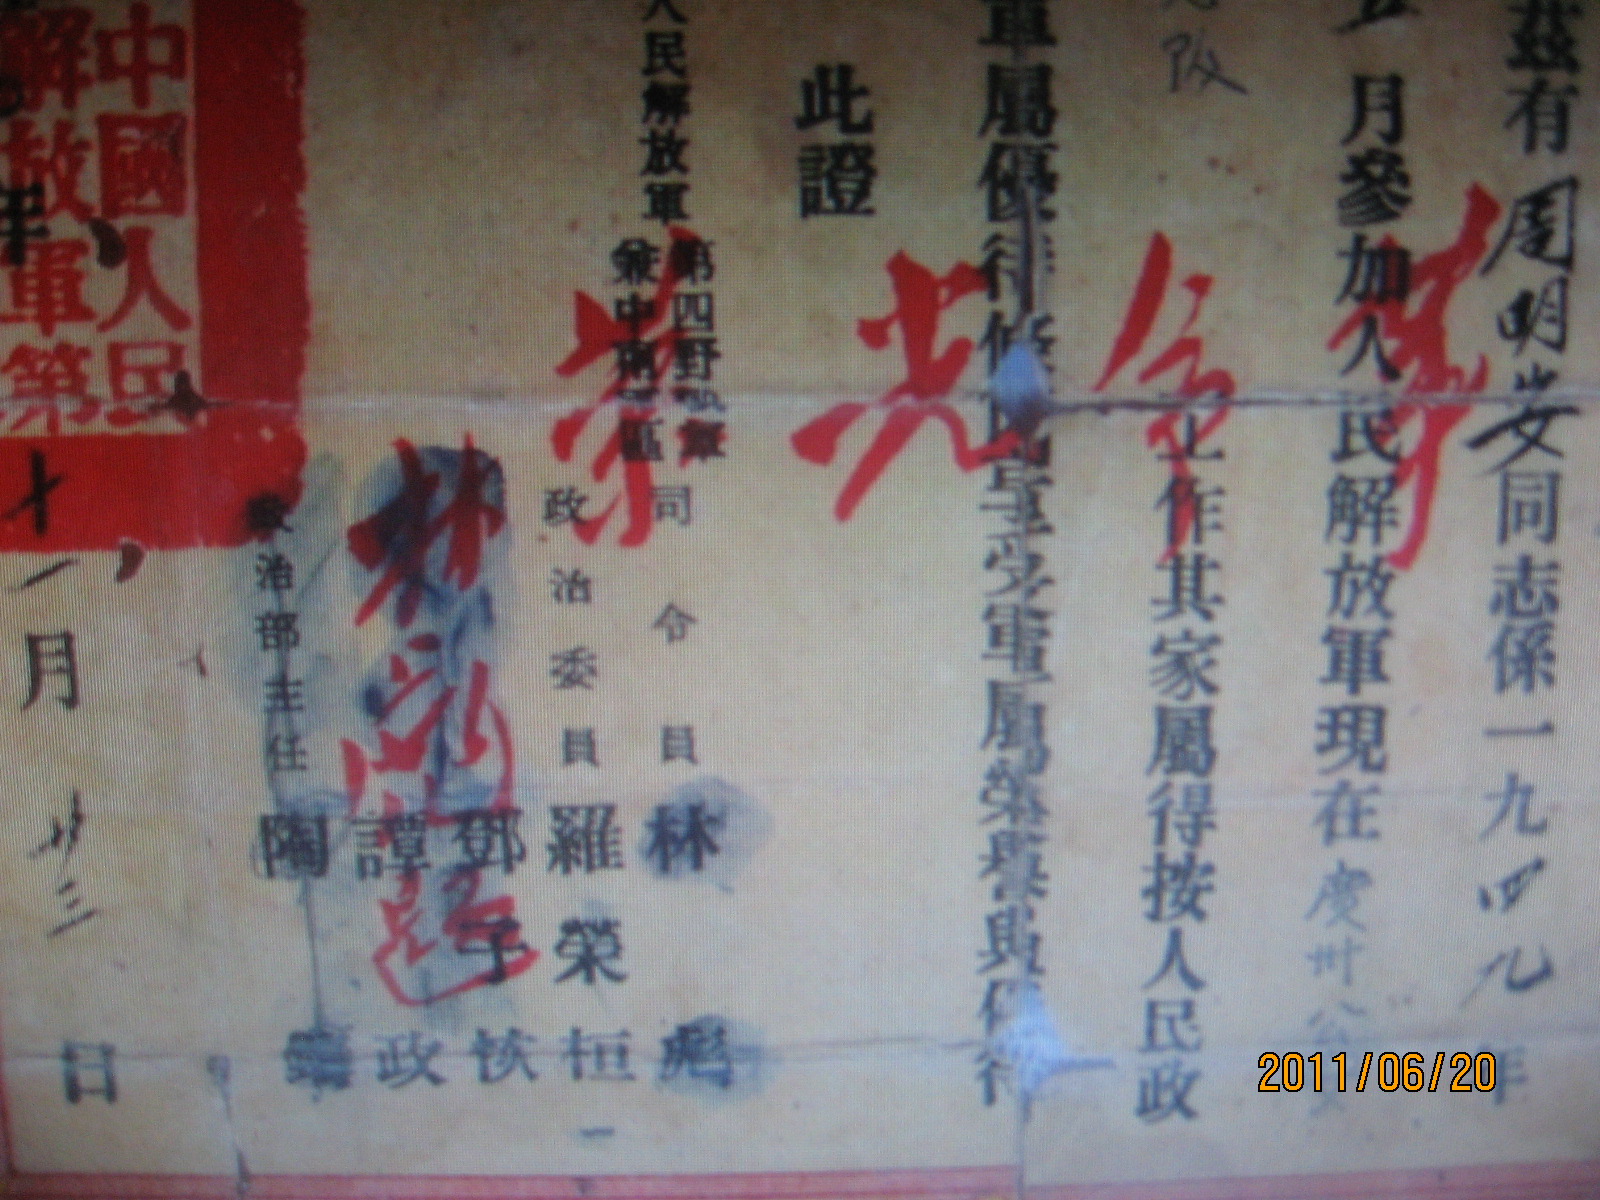 茲有周明安同志係一九四九年
月參加人民解放軍現在慶州公安
改
工作其家屬得按人民政
軍屬優待條例享受軍屬榮譽與優待
此證
革命光榮
人民解放軍
第四野戰軍
兼中南軍區
司令員 林彪
政治委員 羅榮桓
鄧子恢
譚政
政治部主任 陶鑄
林彪題
中國人民
解放軍第
年
十一月廿三日
2011/06/20